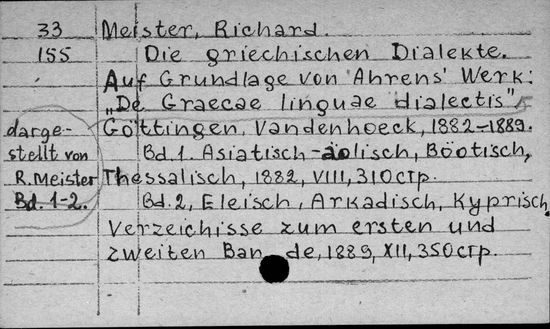 33 Meister, Richard.
155 Die griechischen Dialekte.
Auf Grundlage von Ahrens' Werk:
„De Graecae linguae dialectis"
darge-
stellt von
R. Meister
Bd. 1-2.
Göttingen, Vandenhoeck, 1882-1889.
Bd. 1. Asiatisch-äolisch, Böotisch,
Thessalisch, 1882, VIII, 310 стр.
Bd. 2, Eleisch, Arkadisch, Kyprisch.
Verzeichisse zum ersten und
zweiten Ban de, 1889, XII, 350 стр.